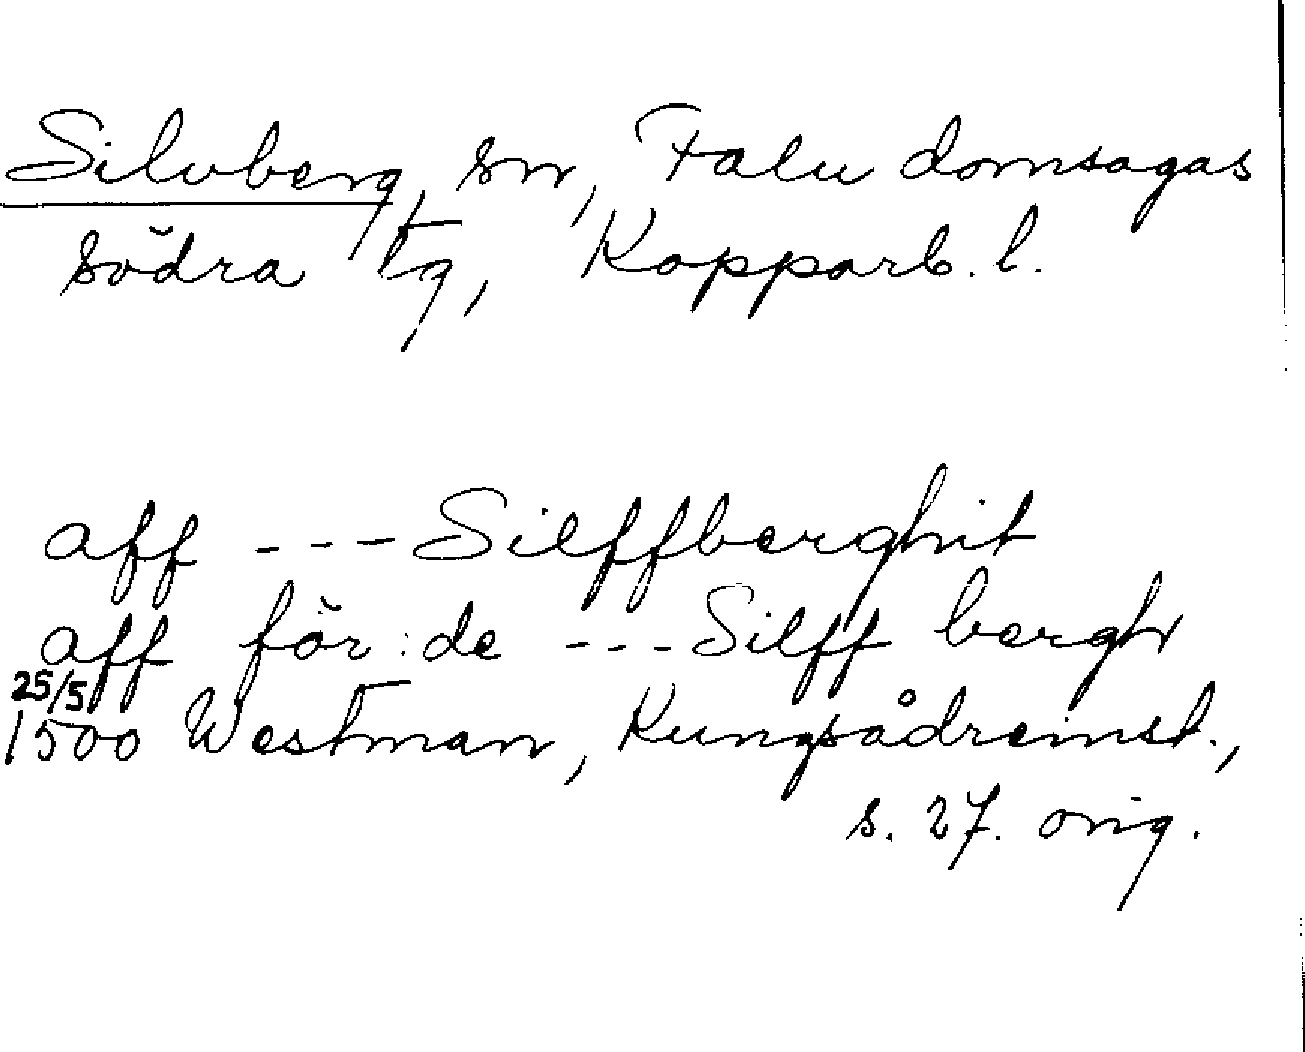 Silvberg, sn, Falu domsagas
södra tg, Kopparb. l.
aff --- Silffberghit
aff för:de --- Silff bergh
25/5
1500 Westman, Kungsådreinst.,
s. 27. orig.